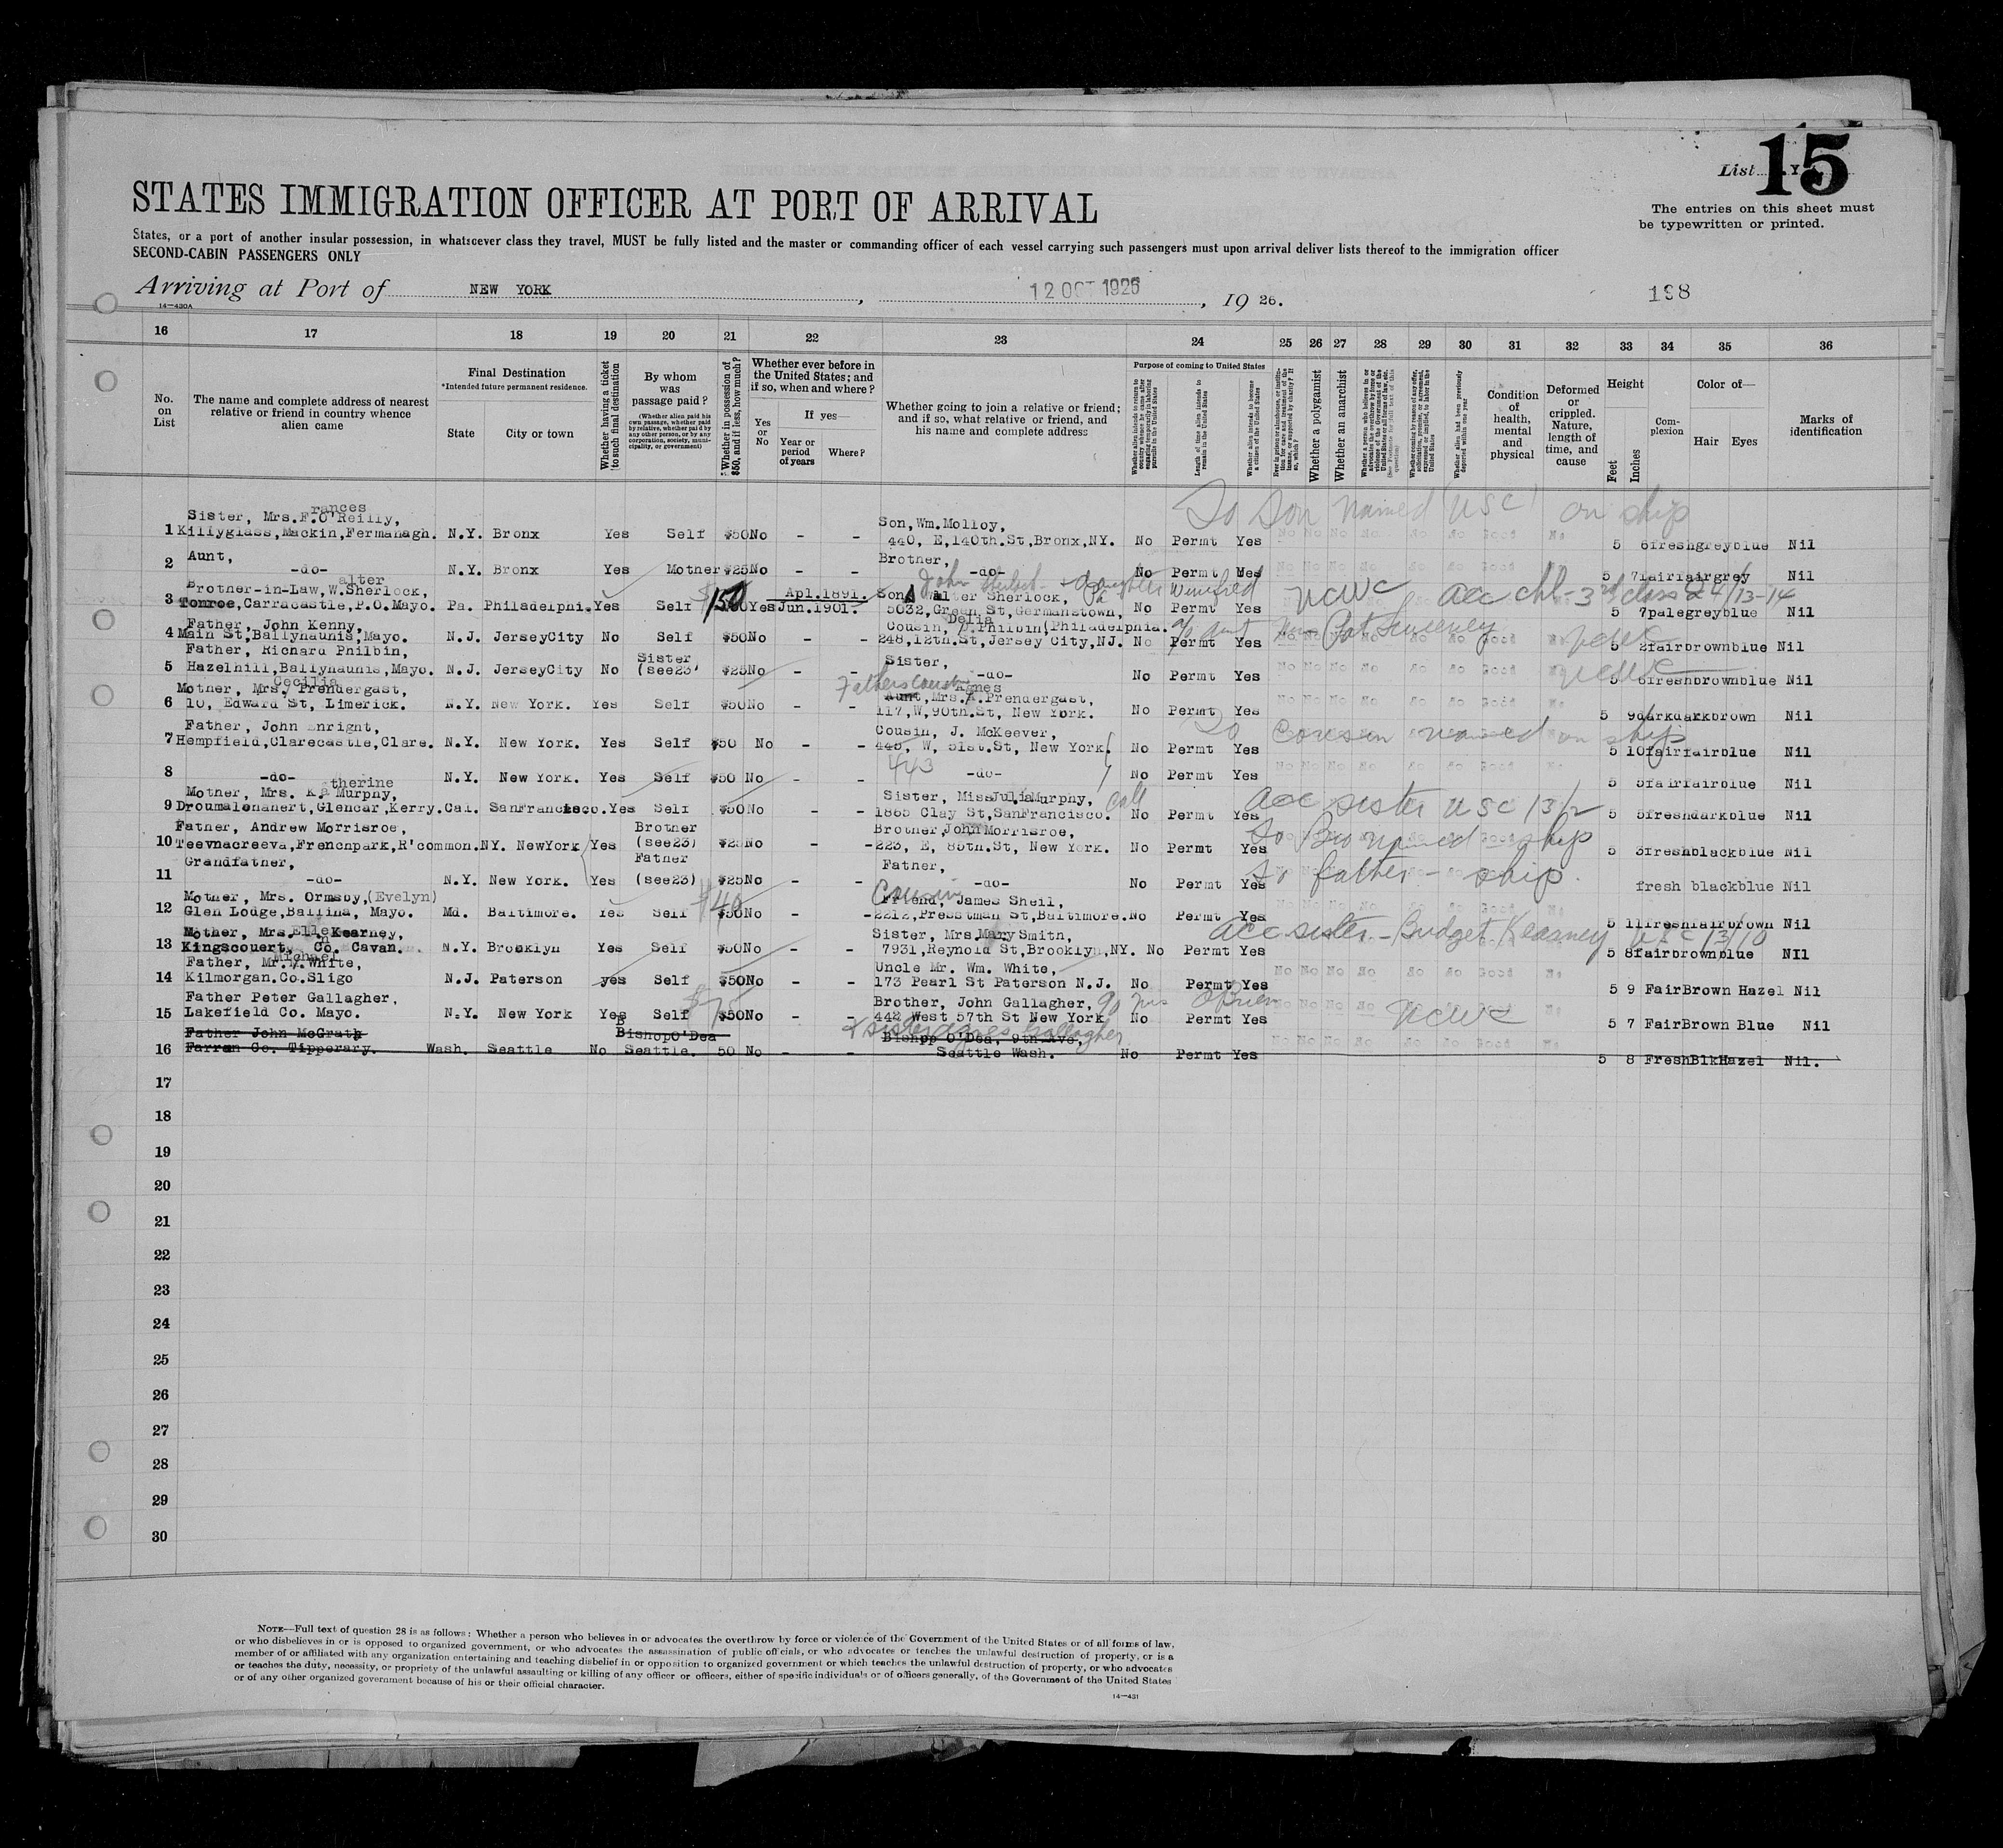 List 15
STATES IMMIGRATION OFFICER AT PORT OF ARRIVAL
The entries on this sheet must
be typewritten or printed.
States, or a port of another insular possession, in whatsoever class they travel, MUST be fully listed and the master or commanding officer of each vessel carrying such passengers must upon arrival deliver lists thereof to the immigration officer
SECOND-CABIN PASSENGERS ONLY
Arriving at Port of NEW YORK, 12 OCT 1926, 19 26.
14—430A
198
16 17 18 19 20 21 22 23 24 25 26 27 28 29 30 31 32 33 34 35 36
No. on List
The name and complete address of nearest relative or friend in country whence alien came
Final Destination
*Intended future permanent residence.
State City or town
Whether having a ticket to such final destination
By whom was passage paid?
(Whether alien paid his own passage, whether paid by relative, whether paid by any other person, or by any corporation, society, municipality, or government)
Whether in possession of $50, and if less, how much?
Whether ever before in the United States; and if so, when and where?
Yes or No
If yes—
Year or period of years Where?
Whether going to join a relative or friend; and if so, what relative or friend, and his name and complete address
Purpose of coming to United States
Length of time alien intends to remain in the United States
Whether alien intends to become a citizen of the United States
Whether a polygamist
Whether an anarchist
Condition of health, mental and physical
Deformed or crippled. Nature, length of time, and cause
Height
Feet Inches
Complexion
Color of—
Hair Eyes
Marks of identification
To Son named USC on ship
rances
Sister, Mrs.F.O'Reilly, Son,Wm.Molloy,
1 Killyglass,Mackin,Fermanagh. N.Y. Bronx Yes Self $50 No - - 440, E,140th.St,Bronx,NY. No Permt Yes 5 6 fresh grey blue Nil
Aunt, Brother,
2 -do- N.Y. Bronx Yes Mother $25 No - - -do- No Permt Yes 5 7 fair fair grey Nil
alter
Brother-in-Law,W.Sherlock, Apl.1891. Son, Walter Sherlock, daughter Winifred NCWC acc chl - 3rd class 24/13-14
3 Tonroe,Carracastle,P.O.Mayo. Pa. Philadelphi. Yes Self 150 Yes Jun.1901. 5032,Green St,Germanstown, No Permt Yes 5 7 pale grey blue Nil
Father, John Kenny, Delia Cousin, D.Philbin(Philadelphia.
4 Main St,Ballyhaunis,Mayo. N.J. JerseyCity No Self $50 No - - 248,12th.St,Jersey City,NJ. No Permt Yes Pat Sweeney 5 2 fair brown blue Nil
Father, Richard Philbin, Sister Sister,
5 Hazelhill,Ballyhaunis,Mayo. N.J. JerseyCity No (see23) $25 No - - -do- No Permt Yes NCWC 5 6 fresh brown blue Nil
Cecilia Fathers Cousin Agnes
Mother, Mrs, Prendergast, Aunt,Mrs.A.Prendergast,
6 10, Edward St, Limerick. N.Y. New York. Yes Self $50 No - - 117,W,90th.St, New York. No Permt Yes 5 9 dark dark brown Nil
Father, John Enright, Cousin, J. McKeever, To Cousin named on ship
7 Hempfield,Clarecastle,Clare. N.Y. New York. Yes Self $50 No - - 445, W, 51st.St, New York. No Permt Yes 5 10 fair fair blue Nil
443
8 -do- N.Y. New York. Yes Self $50 No - - -do- No Permt Yes 5 5 fair fair blue Nil
therine
Mother, Mrs. Ka Murphy, Sister, Miss Julia Murphy, Call acc sister USC 13/2
9 Droumalonahert,Glencar,Kerry. Cal. SanFrancisco. Yes Self $50 No - - 1865 Clay St,SanFrancisco. No Permt Yes 5 5 fresh dark blue Nil
Father, Andrew Morrisroe, Brother Brother,John Morrisroe, To Bro named - ship
10 Teevnacreeva,Frenchpark,R'common. NY. NewYork Yes (see23) $25 No - - 223, E, 85th.St, New York. No Permt Yes 5 3 fresh black blue Nil
Grandfather, Father Father, To father - ship.
11 -do- N.Y. New York. Yes (see23) $25 No - - -do- No Permt Yes fresh black blue Nil
Mother, Mrs. Ormsby,(Evelyn) $40 Cousin Friend, James Sheil,
12 Glen Lodge,Ballina, Mayo. Md. Baltimore. Yes Self $50 No - - 2212,Presstman St,Baltimore. No Permt Yes 5 11 fresh fair brown Nil
Mother, Mrs. Ellen Kearney, Sister, Mrs Mary Smith, acc sister - Bridget Kearney USC 13/10
13 Kingscouert, Co. Cavan. N.Y. Brooklyn Yes Self $50 No - - 7931,Reynold St,Brooklyn,NY. No Permt Yes 5 8 fair brown blue NIl
Michael
Father, Mr.M.White, Uncle Mr. Wm. White,
14 Kilmorgan.Co.Sligo N.J. Paterson yes Self $50 No - - 173 Pearl St Paterson N.J. No Permt Yes 5 9 Fair Brown Hazel Nil
Father Peter Gallagher, $75 Brother, John Gallagher, % Mrs O'Brien
15 Lakefield Co. Mayo. N.Y. New York Yes Self $50 No - - 442 West 57th St New York No Permt Yes NCWC 5 7 Fair Brown Blue Nil
+ sister Agnes Gallagher
Father John McGrath Bishop O'Dea Bishop O'Dea, 9th Ave,
16 Farran Co. Tipperary. Wash. Seattle No Seattle. 50 No - - Seattle Wash. No Permt Yes 5 8 Fresh Blk Hazel Nil.
17
18
19
20
21
22
23
24
25
26
27
28
29
30
NOTE—Full text of question 28 is as follows: Whether a person who believes in or advocates the overthrow by force or violence of the Government of the United States or of all forms of law,
or who disbelieves in or is opposed to organized government, or who advocates the assassination of public officials, or who advocates or teaches the unlawful destruction of property, or is a
member of or affiliated with any organization entertaining and teaching disbelief in or opposition to organized government or which teaches the unlawful destruction of property, or who advocates
or teaches the duty, necessity, or propriety of the unlawful assaulting or killing of any officer or officers, either of specific individuals or of officers generally, of the Government of the United States
or of any other organized government because of his or their official character.
14—431